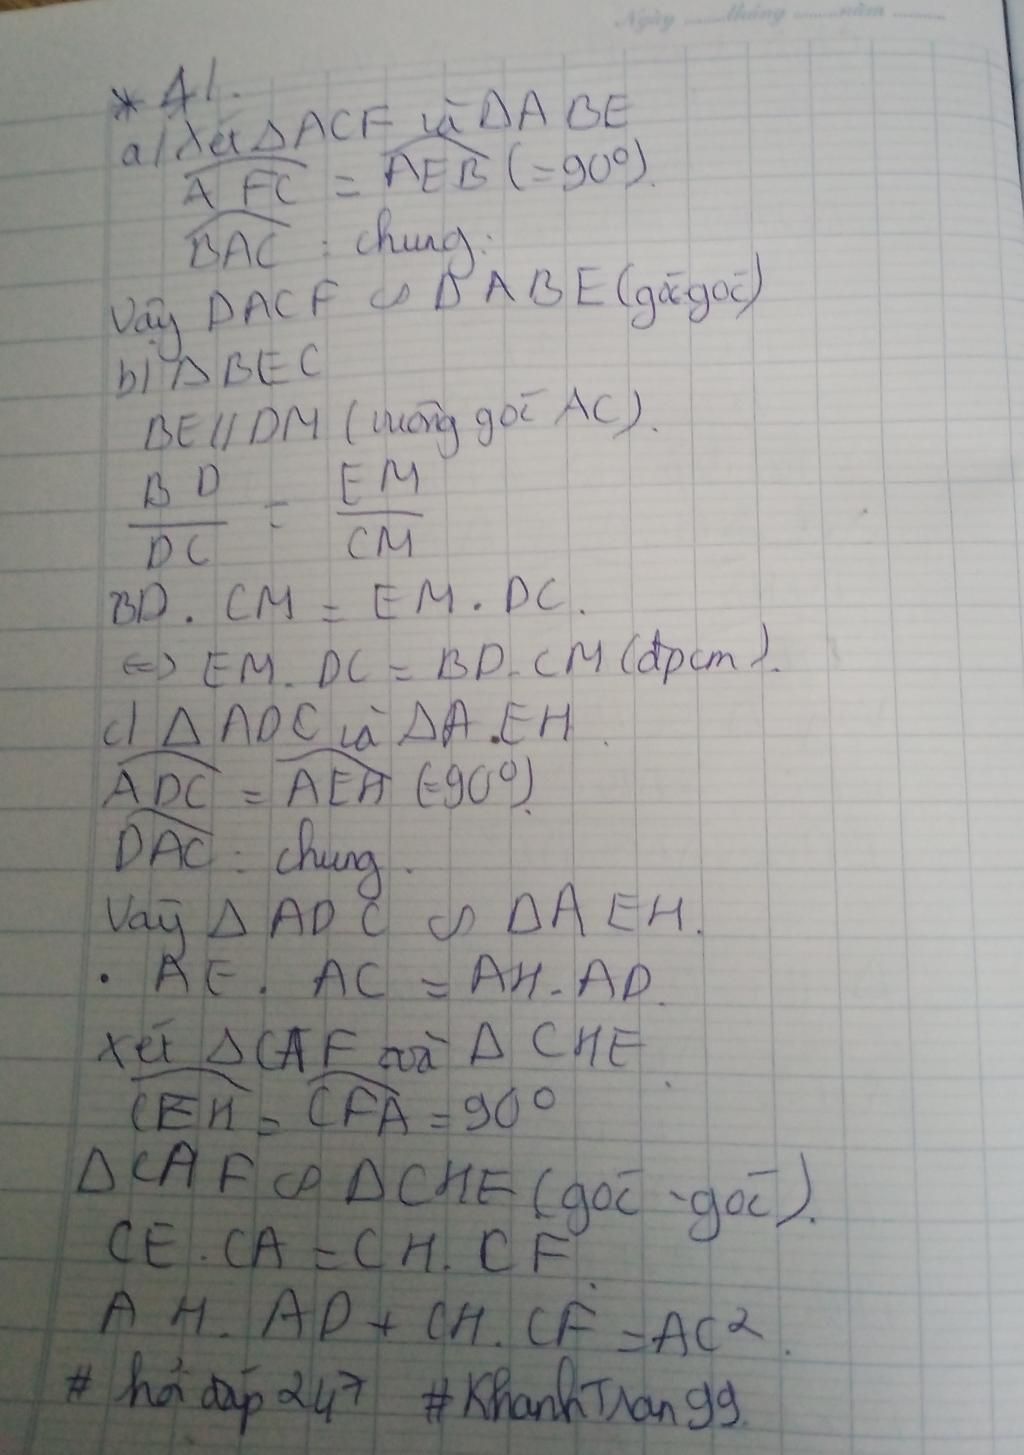 Ngày ........tháng ........năm .........
* 41.
a/ Xét ΔACF và ΔABE
AFC = AEB (=90⁰).
BAC : chung.
Vậy ΔACF ∽ ΔABE (góc-góc)
b/ ΔBEC
BE//DM (vuông góc AC).
BD/DC = EM/CM
BD. CM = EM. DC.
<=> EM. DC = BD. CM (đpcm).
c/ ΔADC và ΔA.EH.
ADC = AEH (=90⁰).
DAC : chung.
Vậy ΔADC ∽ ΔAEH.
. AE. AC = AH. AD.
Xét ΔCAF và ΔCHE.
CEH = CFA = 90⁰
ΔCAF ∽ ΔCHE (góc -góc).
CE. CA = CH. CF.
AH. AD + CH. CF = AC².
# hỏi đáp 247 #KhanhTran99.